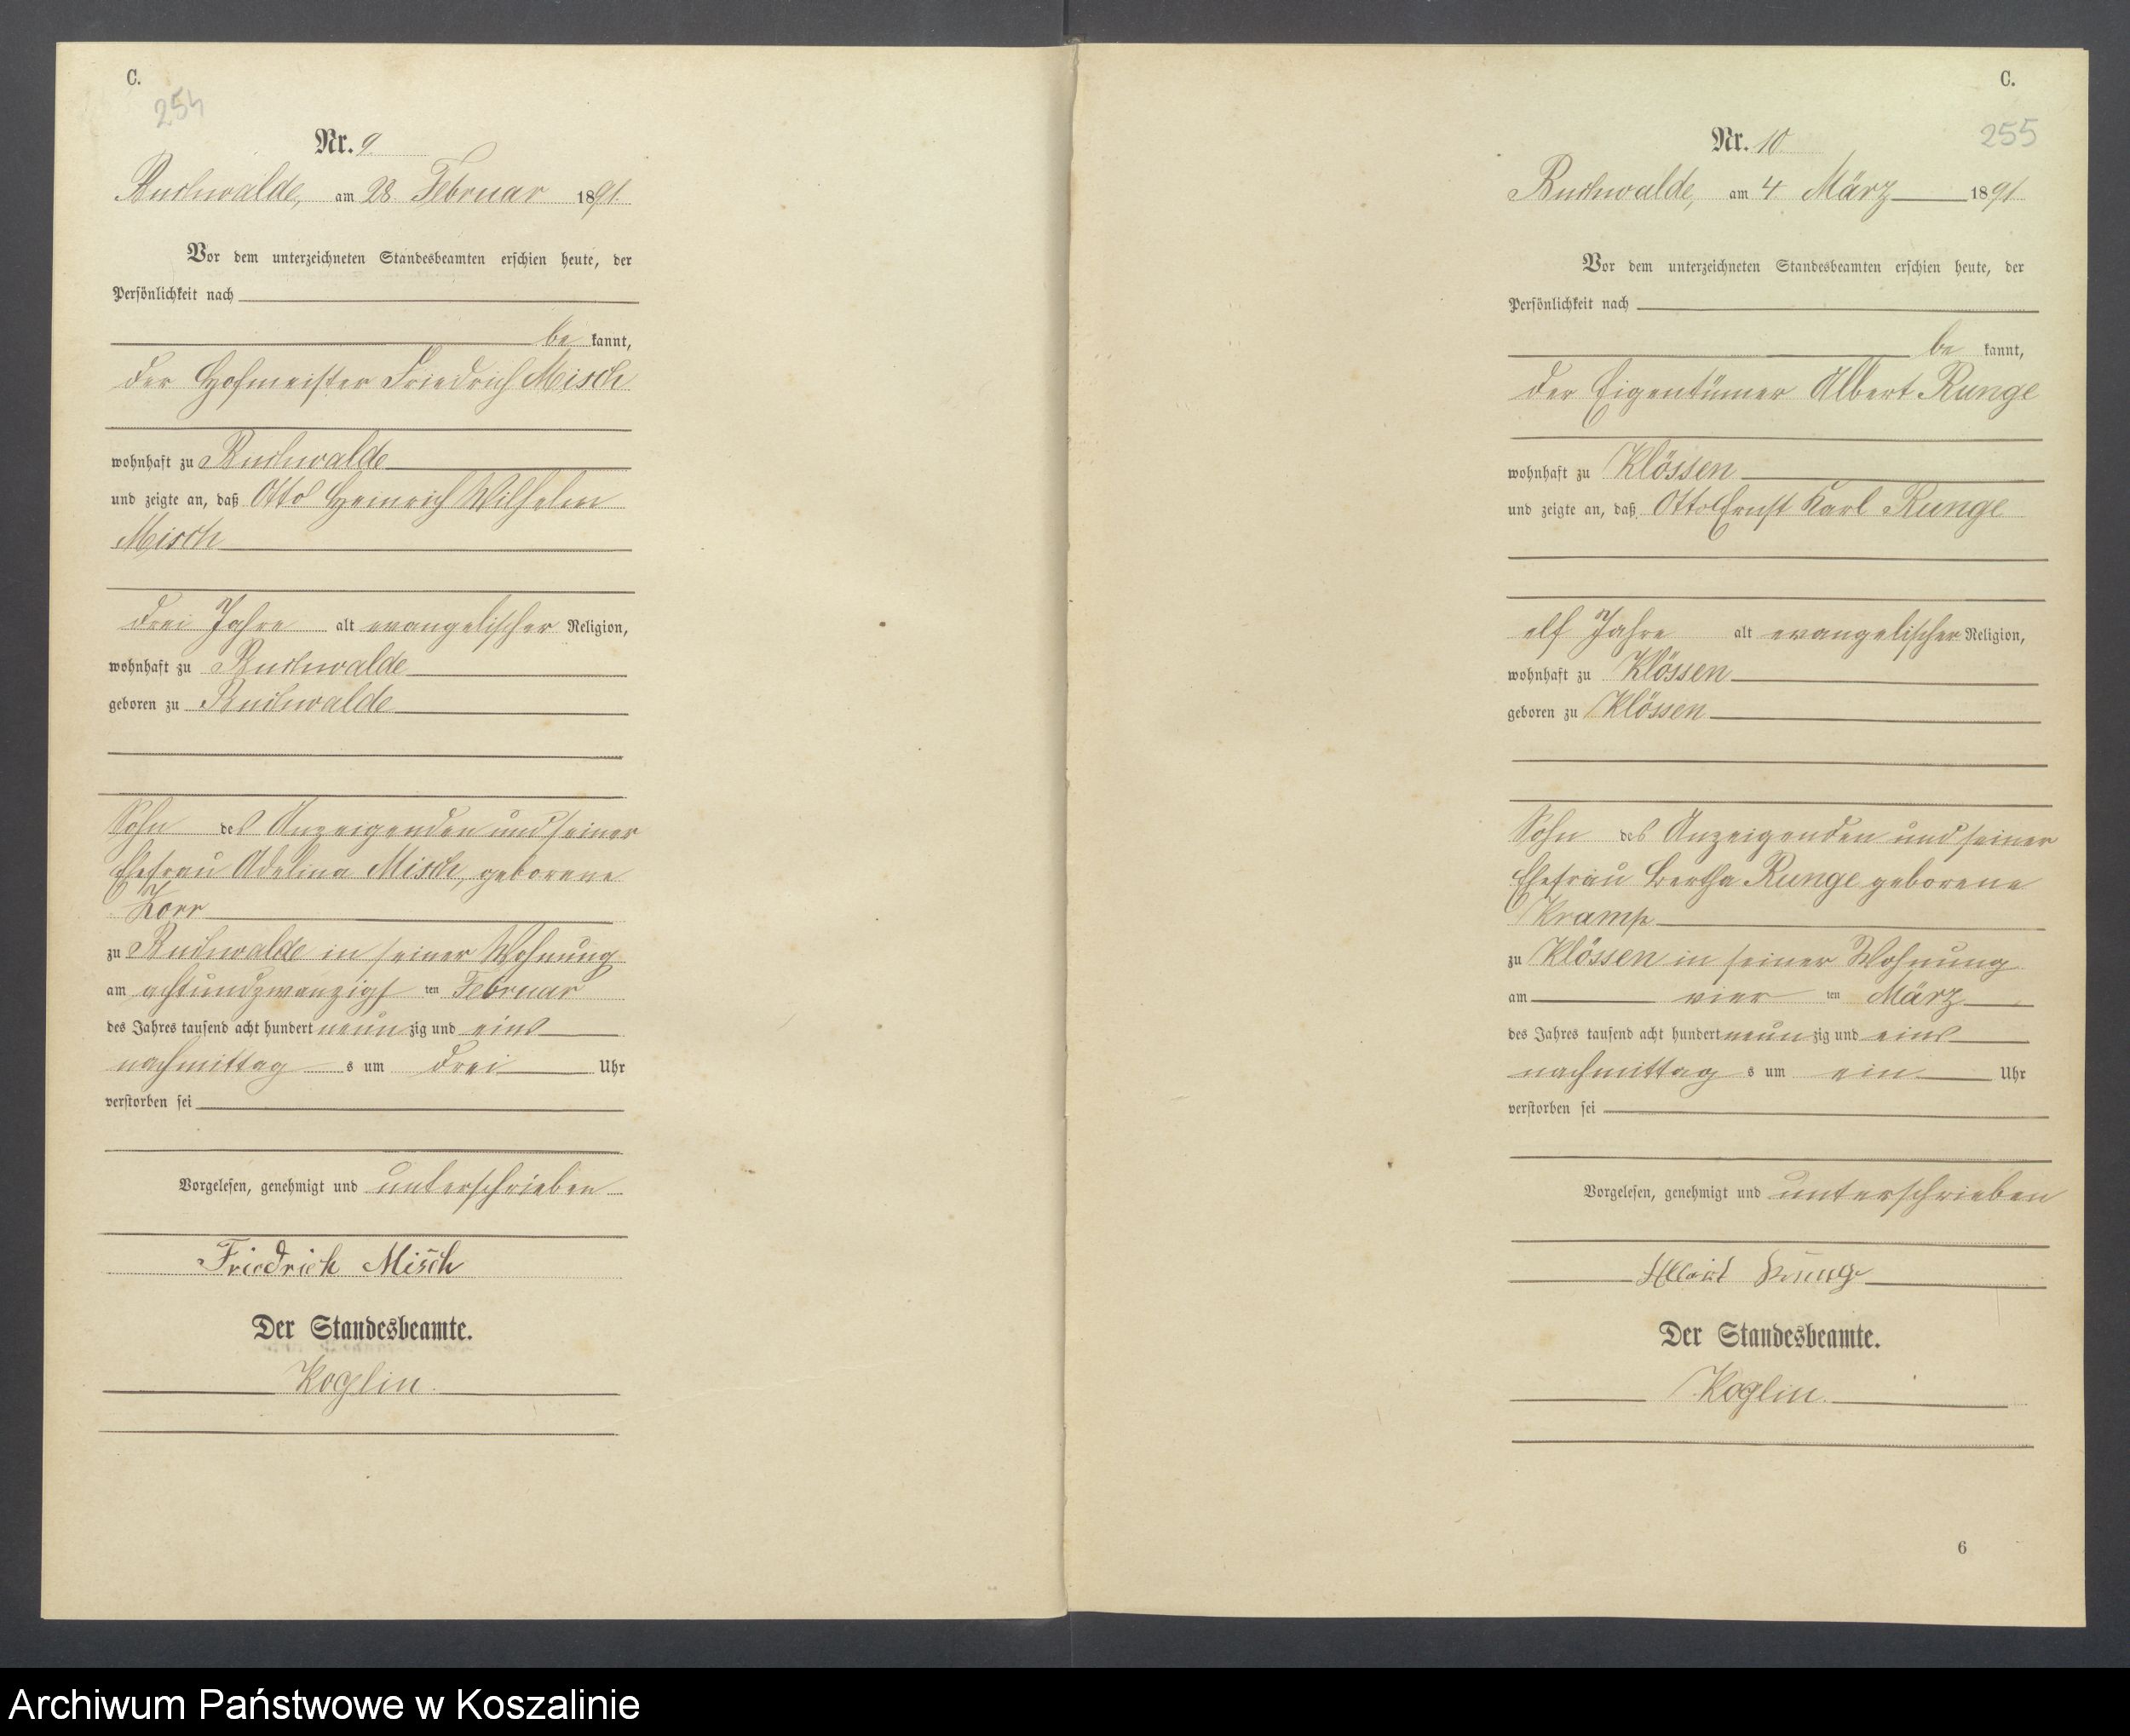 C.
254
Nr. 9
Buchwalde, am 28. Februar 1891.
Vor dem unterzeichneten Standesbeamten erschien heute, der
Persönlichkeit nach
be kannt,
der Hofmeister Friedrich Misch
wohnhaft zu Buchwalde
und zeigte an, daß Otto Heinrich Wilhelm
Misch
drei Jahre alt evangelischer Religion,
wohnhaft zu Buchwalde
geboren zu Buchwalde
Sohn des Anzeigenden und seiner
Ehefrau Adeline Misch, geborene
Korr
zu Buchwalde in seiner Wohnung
am achtundzwanzigsten Februar
des Jahres tausend acht hundert neunzig und eins
nachmittags um drei Uhr
verstorben sei
Vorgelesen, genehmigt und unterschrieben
Friedrich Misch
Der Standesbeamte.
Koglin.
C.
255
Nr. 10
Buchwalde, am 4 März 1891
Vor dem unterzeichneten Standesbeamten erschien heute, der
Persönlichkeit nach
be kannt,
der Eigentümer Albert Runge
wohnhaft zu Klössen
und zeigte an, daß Otto Ernst Karl Runge
elf Jahre alt evangelischer Religion,
wohnhaft zu Klössen
geboren zu Klössen
Sohn des Anzeigenden und seiner
Ehefrau Bertha Runge geborene
Kramp
zu Klössen in seiner Wohnung
am vierten März
des Jahres tausend acht hundert neunzig und eins
nachmittags um ein Uhr
verstorben sei
Vorgelesen, genehmigt und unterschrieben
Albert Runge
Der Standesbeamte.
Koglin.
6
Archiwum Państwowe w Koszalinie